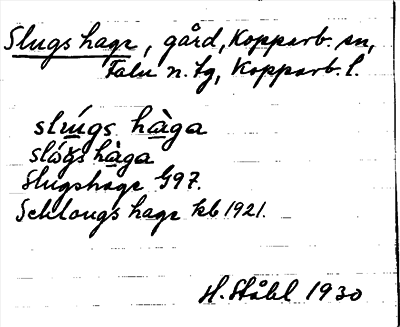 Slugs hage, gård, Kopparb. sn,
Falu n. tg, Kopparb. l.
slúgs hàga
slógs hàga
Slugshage G97.
Schlougs hage kb 1921.
H. Ståhl 1930